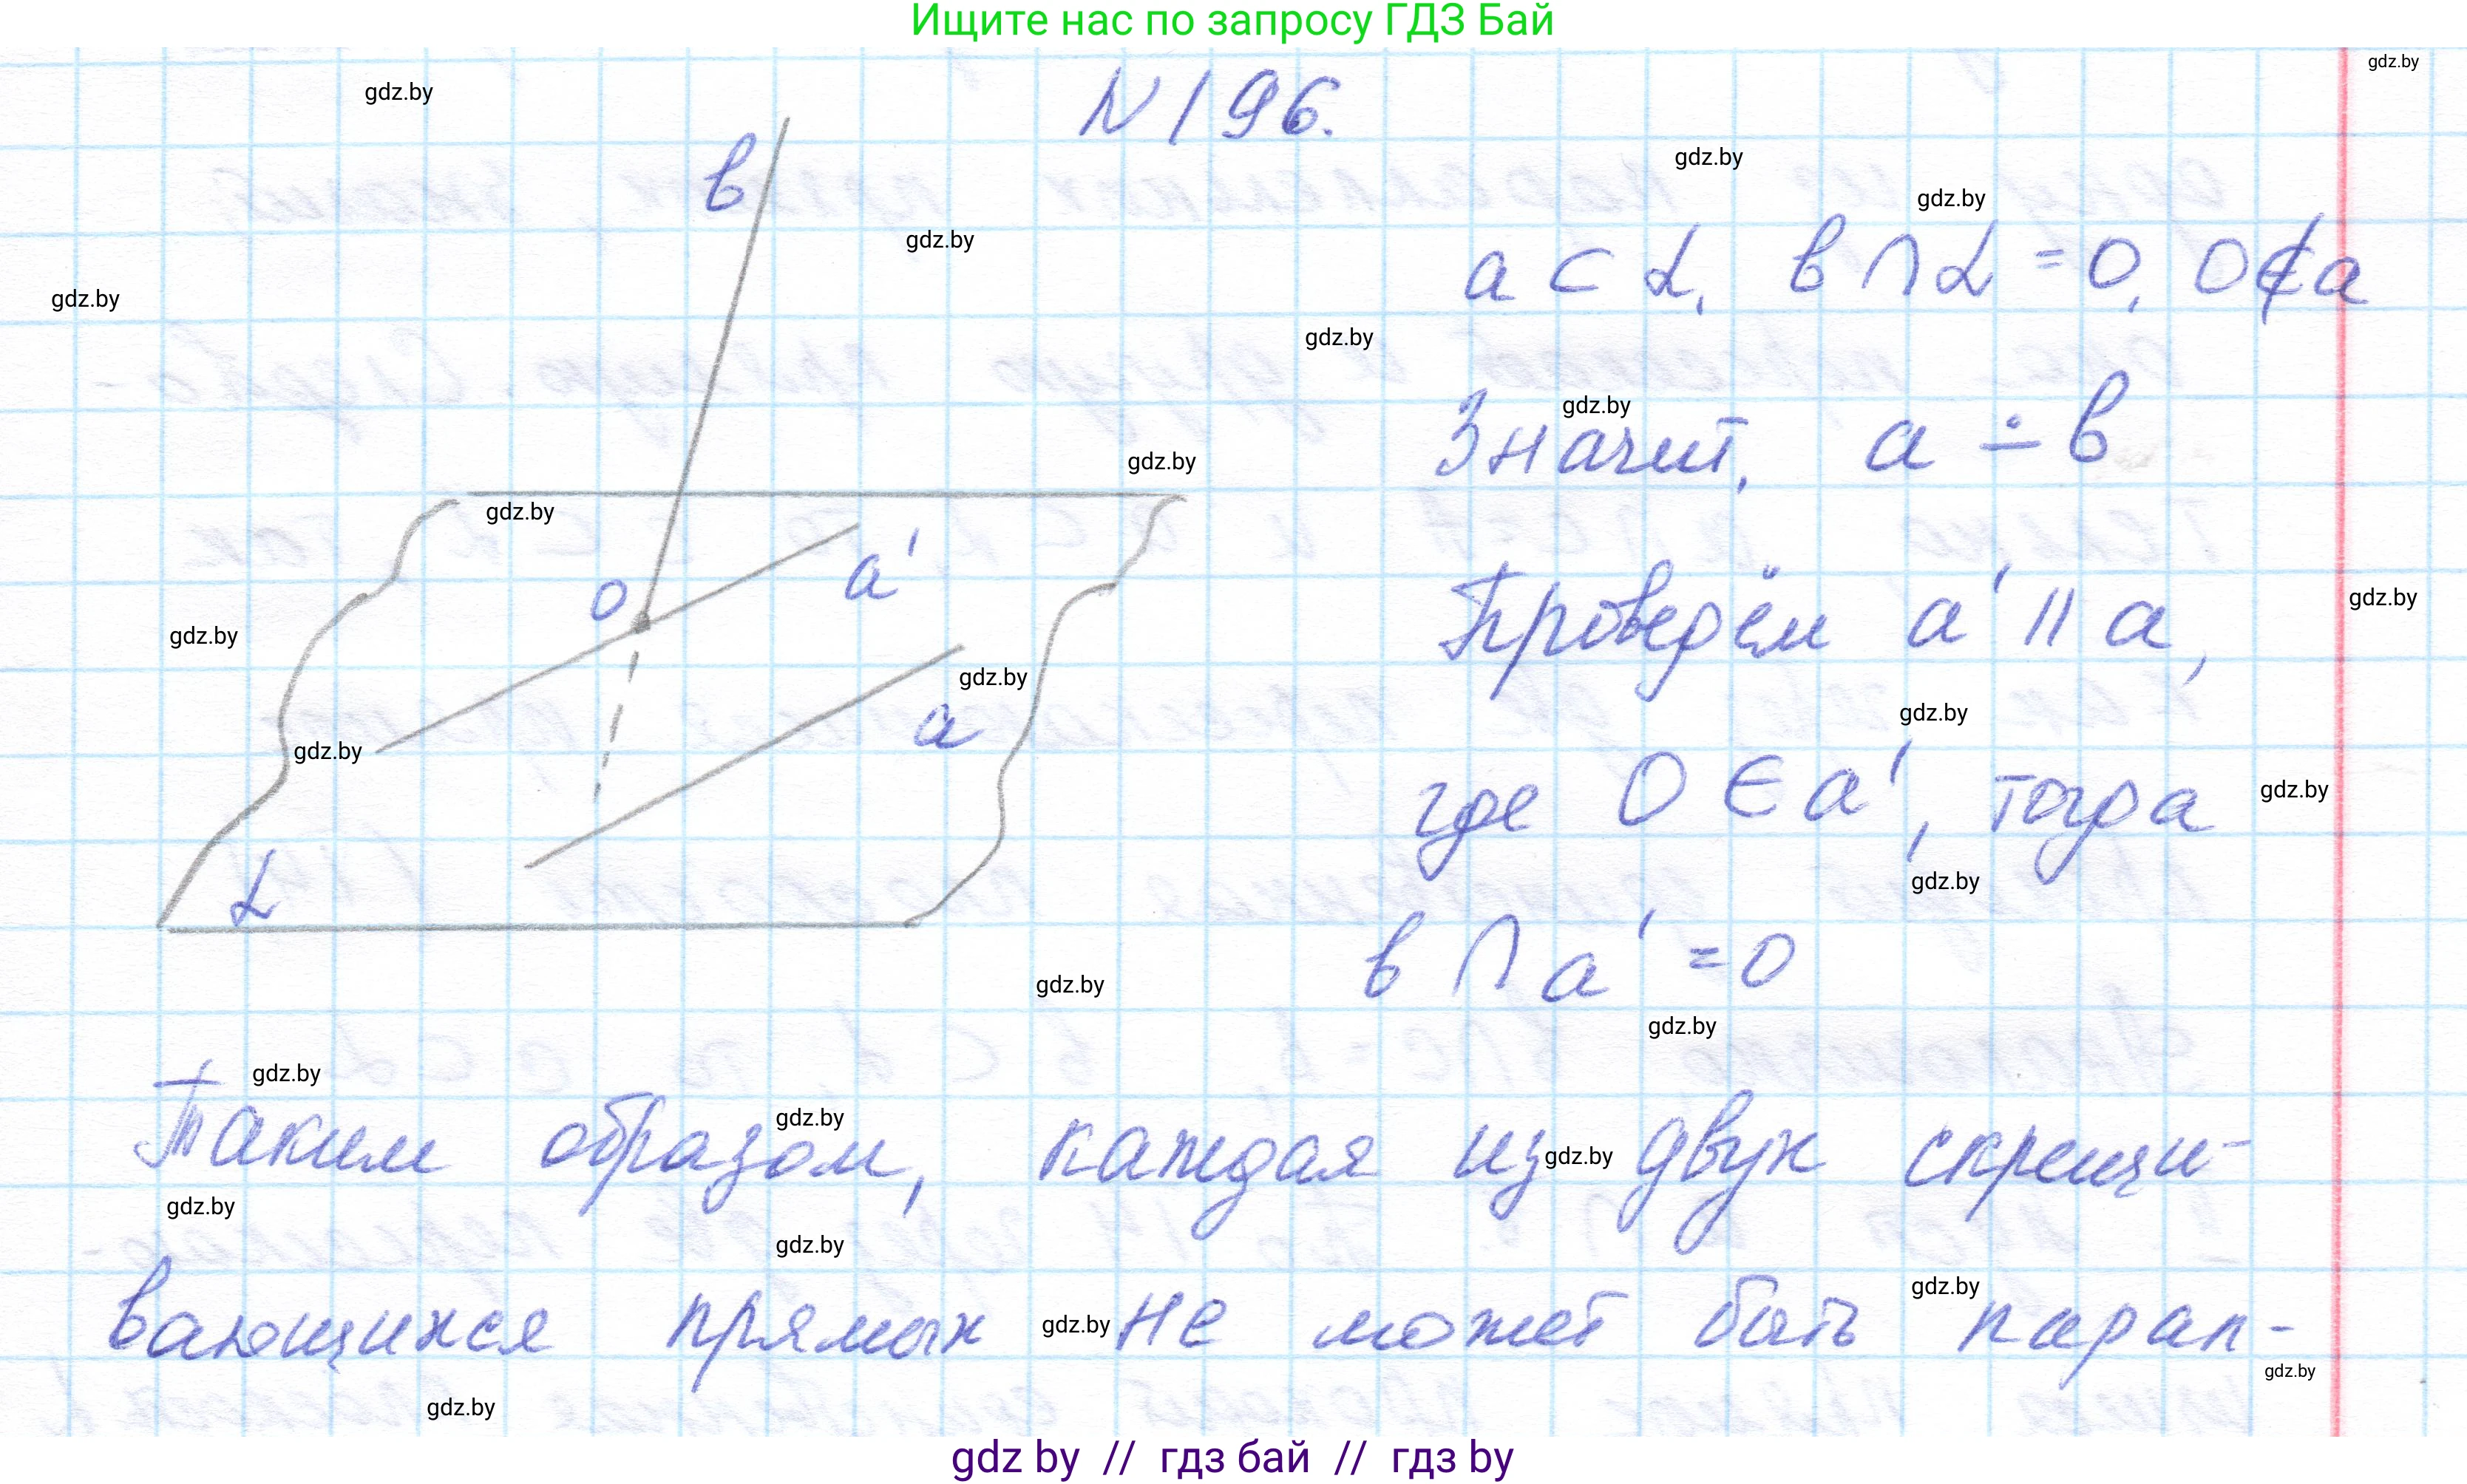 Ищите нас по запросу ГДЗ Бай
gdz.by
gdz.by
N196.
gdz.by
в
gdz.by
gdz.by
a ⊂ α, в ∩ α = O, O ∉ a
gdz.by
gdz.by
gdz.by
Значит, a ∸ в
gdz.by
gdz.by
a'
O
Проведём a' || a,
gdz.by
gdz.by
gdz.by
a
gdz.by
gdz.by
где O ∈ a', тогда
gdz.by
gdz.by
α
в ∩ a' = O
gdz.by
gdz.by
gdz.by
gdz.by
Таким образом, каждая из двух скрещи-
gdz.by
gdz.by
gdz.by
вающихся прямых не может быть парал-
gdz.by
gdz.by
gdz.by
gdz.by
gdz by // гдз бай // гдз by